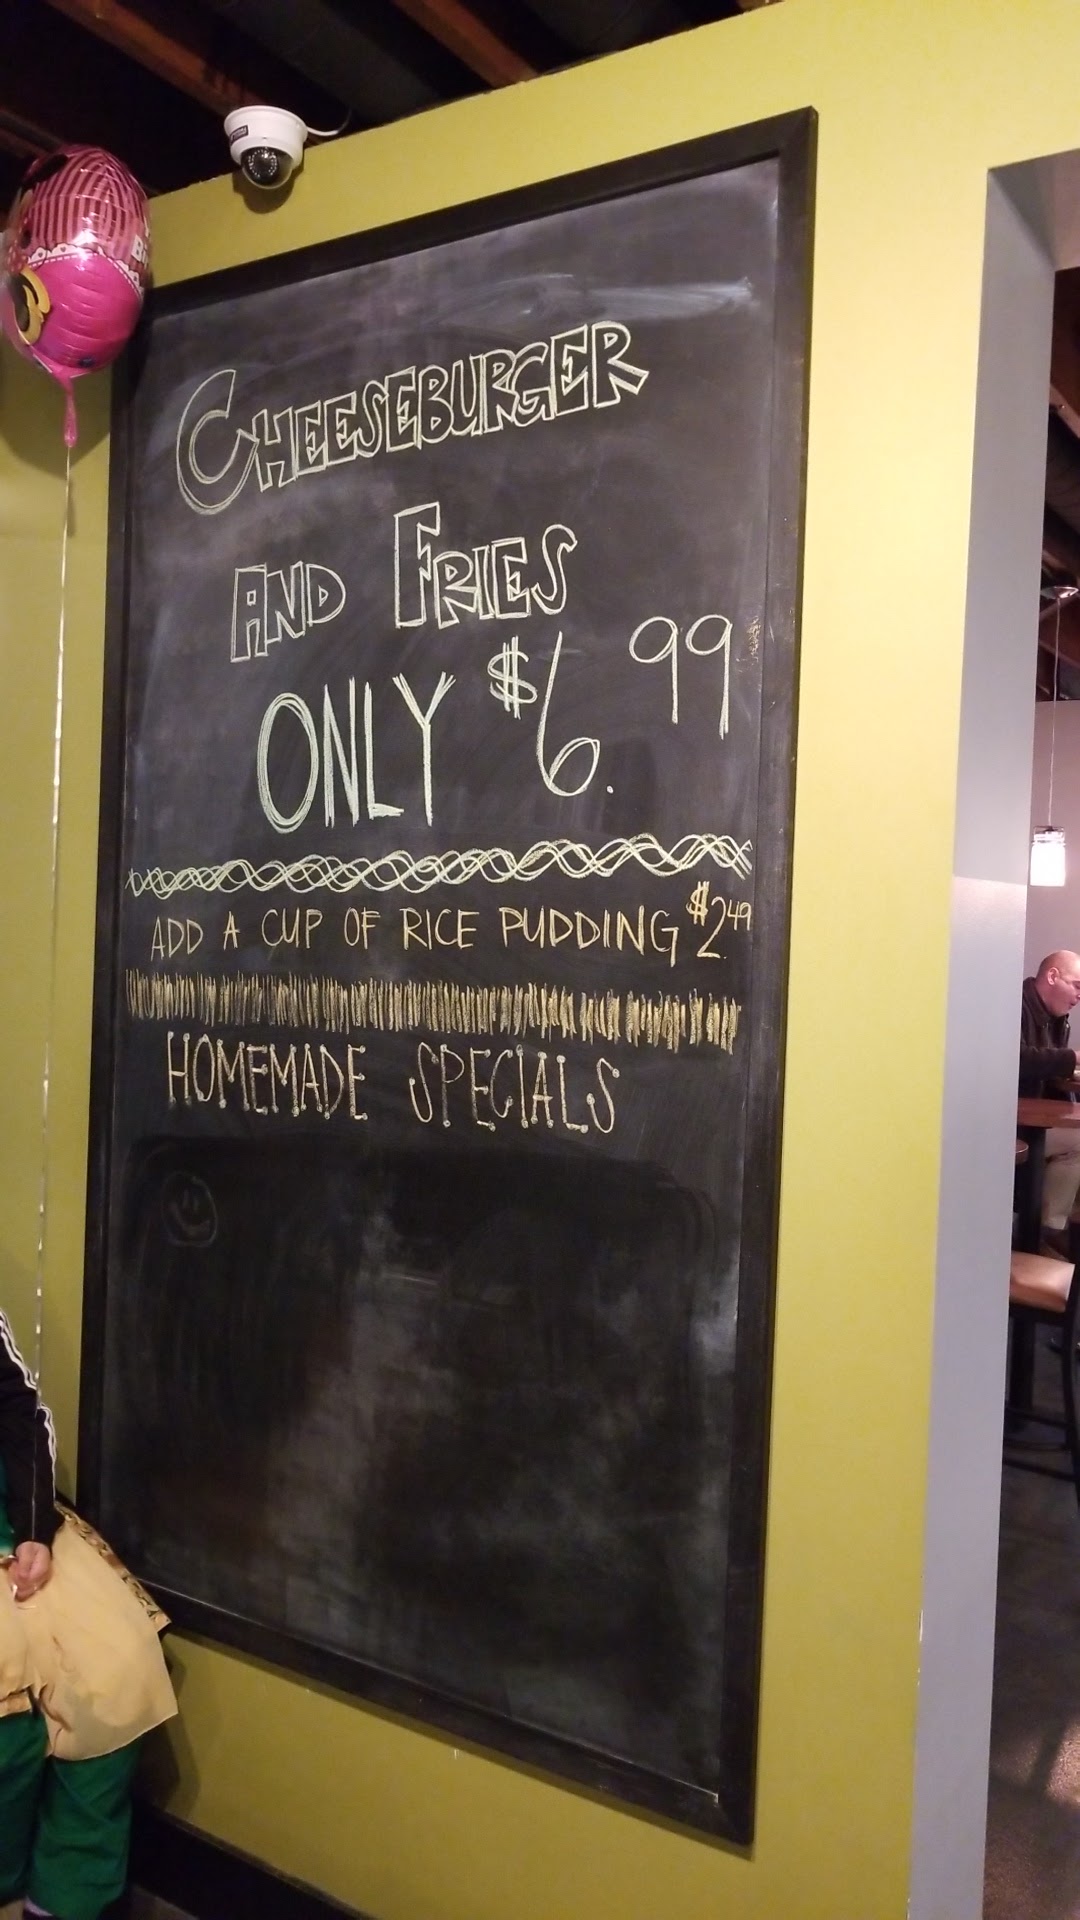 CHEESEBURGER
AND FRIES
ONLY $6.99
ADD A CUP OF RICE PUDDING $2.49
HOMEMADE SPECIALS